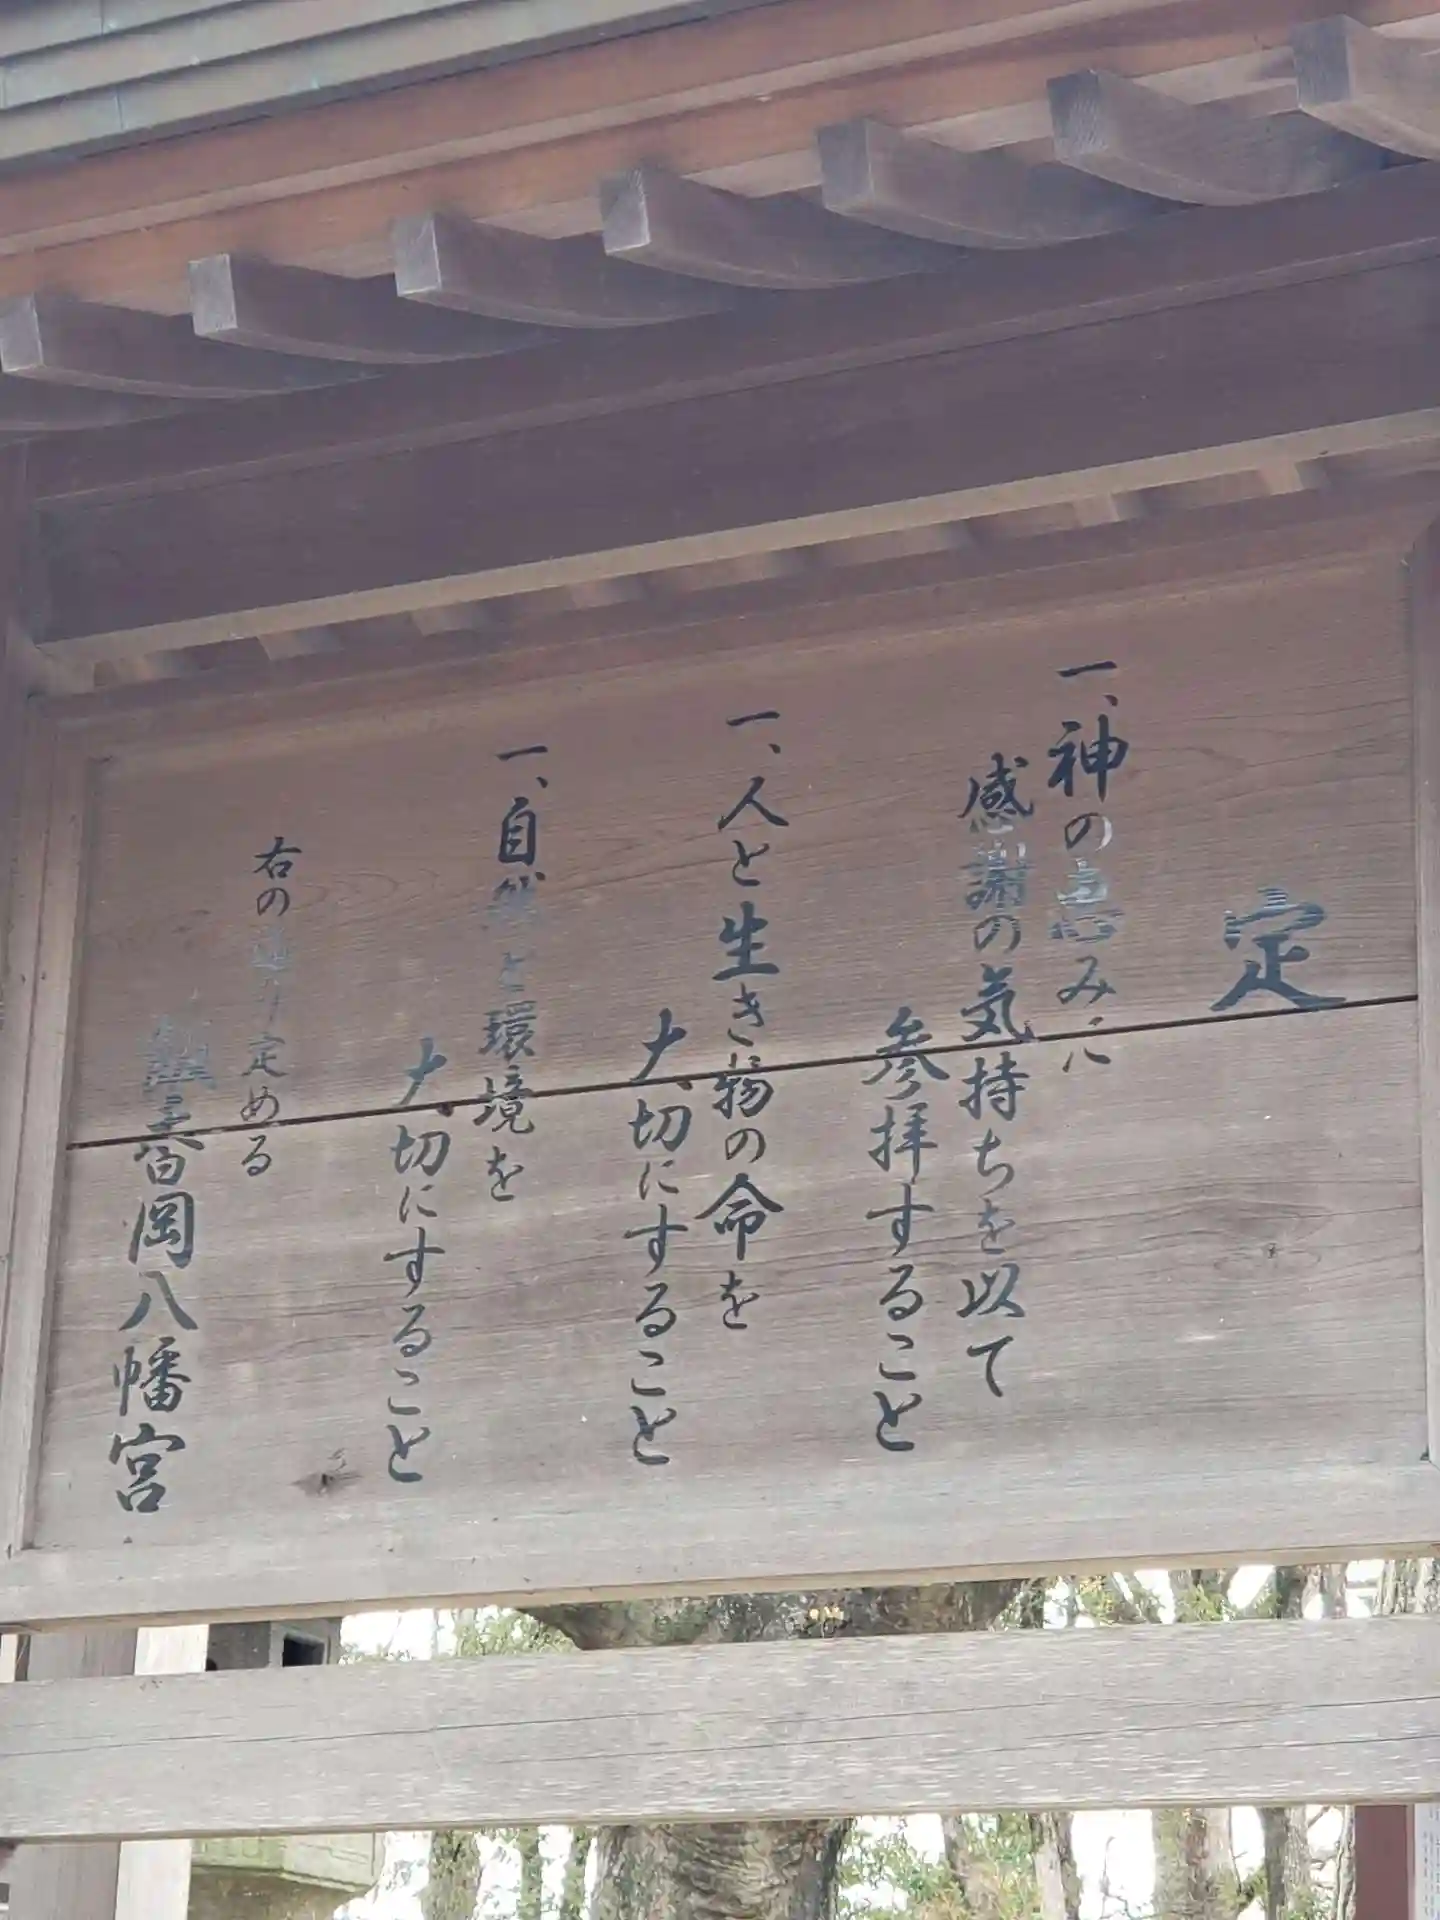 定
一、神の恵みに
感謝の気持ちを以て
参拝すること
一、人と生き物の命を
大切にすること
一、自然と環境を
大切にすること
右の通り定める
飯香岡八幡宮